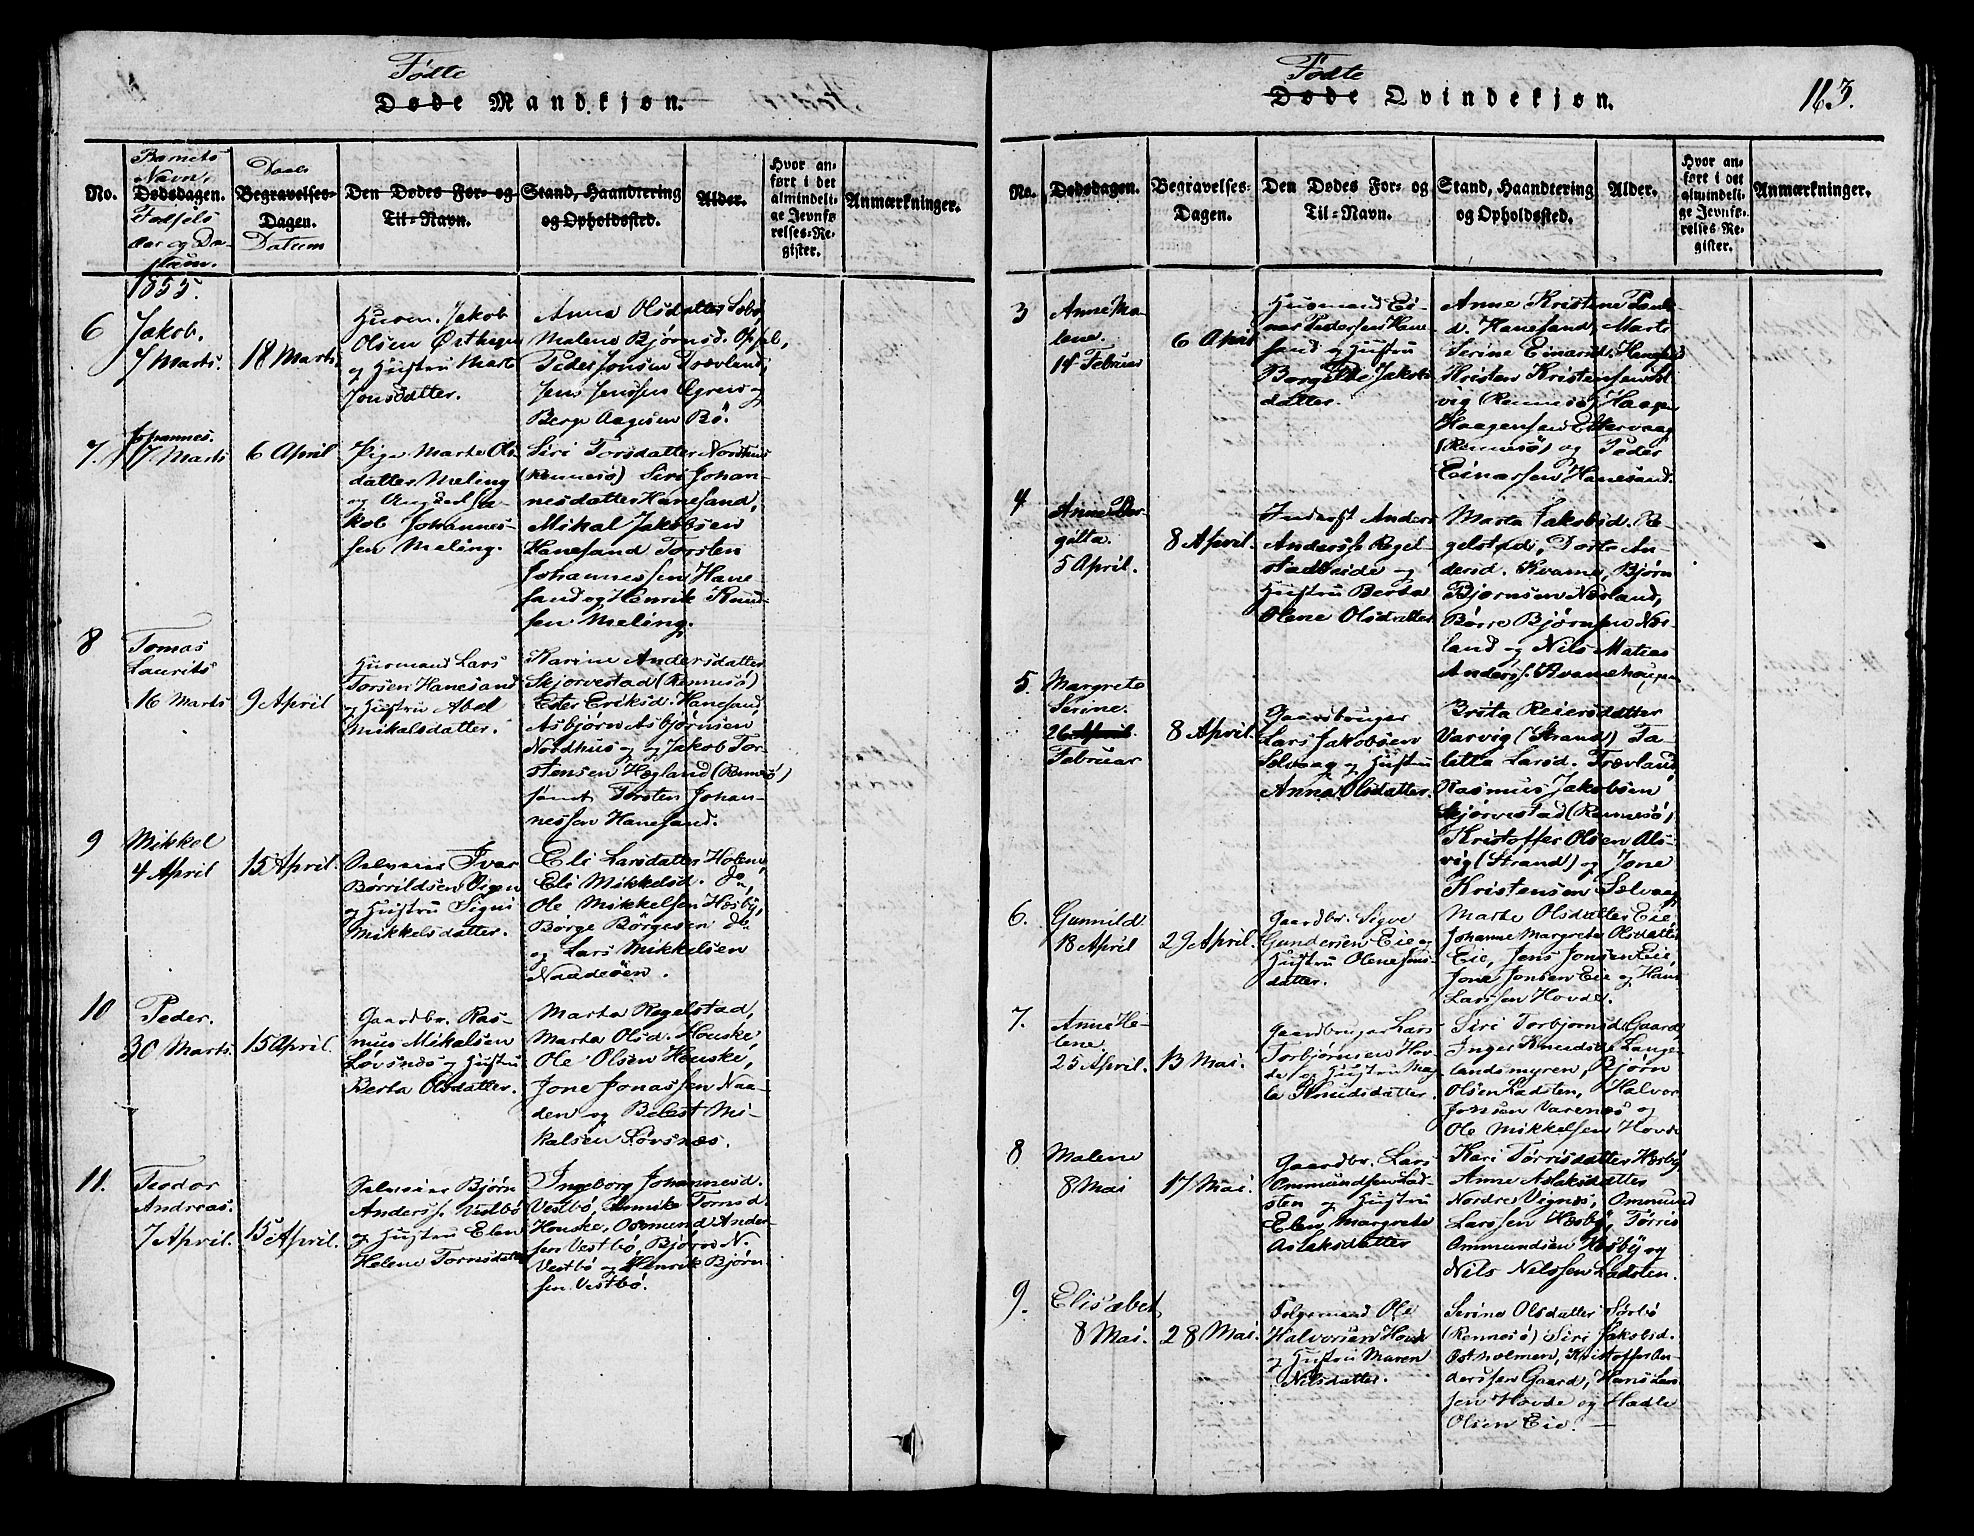 Fødte
Døde Mandkjøn.
No.
Barnets
Navn,
Dødsdagen.
Fødsels
aar og Da-
tum.
Daabs
Begravelses-
Dagen.
Datum
Den Dødes For- og
Til-Navn.
Stand, Haandtering
og Opholdssted.
Alder.
Hvor an-
ført i det
almindeli-
ge Jevnfø-
relses-Re-
gister.
Anmærkninger.
1855.
6
Jakob.
7 Marts.
18 Marts.
Husm. Jakob
Olsen
og Hustru Marte
Jonsdatter.
Anna Olsdatter Sebø,
Malene Bjørnsd.
Peder Jonsen Trævland,
Jens Jenssen og
Berge Aagesen Bø.
7.
Johannes.
17 Marts
6 April
Pige Marte Ols-
datter Meling
og Ungkarl Ja-
kob Johannes-
sen Meling.
Siri Torsdatter Nordhus
(Rennesø) Siri Johan-
nesdatter Hanesand,
Mikal Jakobsen
Hanesand Torsten
Johannessen Hane-
sand og Henrik Knud-
sen Meling.
8
Tomas
Laurits
16 Marts
9 April
Husmand Lars
Torsen Hanesand
og Hustru Abel
Mikalsdatter.
Karine Andersdatter
Skjørvestad (Rennesø)
Eriksd. Hanesand,
Asbjørn Asbjørnsen
Nordhus og Jakob Tor-
stensen Hægland (Rennesø)
samt Torsten Johan-
nessen Hanesand.
9
Mikkel
4 April
15 April.
Selveier Ivar
Børrildsen Vigen
og Hustru Signi
Mikkelsdatter.
Eli Larsdatter Holem,
Eli Mikkelsd. do,
Ole Mikkelsen Hæsby,
Børge Børgesen do
og Lars Mikkelsen
Naadeøen.
10
Peder.
30 Marts.
15 April.
Gaardbr. Ras-
mus Mikalsen
Løvsnæs og Hustru
Berta Olsdatter.
Marta Regelstad,
Marta Olsd. Houske,
Ole Olsen Houske,
Jone Jonassen Naa-
den og Bølest Mi-
kalsen Løvsnæs.
11.
Teodor
Andreas.
7 April.
15 April.
Selveier Bjørn
Anderss. Vestbø
og Hustru Elen
Helene Tormsdatter
Ingeborg Johannesd.
Vestbø, Annike Tormsd.
Houske, Osmund Ander-
sen Vestbø, Bjørn N.
Vestbø og Henrik Bjørn-
sen Vestbø.
Fødte
Døde Qvindekjøn.
163.
No.
Dødsdagen.
Begravelses-
Dagen.
Den Dødes For- og
Til-Navn.
Stand, Haandtering
og Opholdssted.
Alder.
Hvor an-
ført i det
almindeli-
ge Jevnfø-
relses-Re-
gister.
Anmærkninger.
3
Anne Ma-
lene.
14 Februar
6 April
Husmand Ei-
nar Pedersen Hane-
sand og Hustru
Borgilde Jakobs-
datter.
Anne Kristine Peders-
d. Hanesand, Marte
Serine Einarsd. Hanesand
Kristen Kristensen Sel-
vig (Rennesø) Haagen
Haagensen Ettervaag
(Rennesø) og Peder
Einarssen Hanesand.
4
Anne Ber-
gitta.
5 April.
8 April.
Inderst Anders
Anderss. Regel-
stadbeide og
Hustru Berta
Olene Olsdatter
Marta Jakobsd. Re-
gelstad, Dorte An-
dersd. Kvame, Bjørn
Bjørnsen Næsland,
Børre Bjørnsen Næs-
land og Nils Matias
Anderss. Kvamehougen
5.
Margrete
Serine.
26 April.
Februar
8 April.
Gaardbruger
Lars Jakobsen
Selvaag og Hustru
Anna Olsdatter.
Brita Reiersdatter
Varvig (Strand) Ta-
letta Larsd. Trævland
Rasmus Jakobsen
Skjørvestad (Rennesø)
Kristoffer Olsen Als-
vig (Strand) og Jone
Kristensen Selvaag
6.
Gunnild
18 April
29 April.
Gaardbr. Sigve
Gundersen Eie og
Hustru Olene Jens-
datter.
Marte Olsdatter Eie,
Johanne Margrete Olsdatter
Eie, Jens Jonsen Eie,
Jone Jonsen Eie og Hans
Larssen Hovde.
7.
Anne He-
lene.
25 April.
13 Mai.
Gaardbruger Lars
Torbjørnsen Hov-
de og Hustru Ma-
le Knudsdatter.
Siri Torbjørnsd. Gaard,
Inger Knudsd. Lange-
landsmyren, Bjørn
Olsen Ladsten, Halvor
Jonsen Varenæs og
Ole Mikkelsen Hovde
8
Malene
8 Mai
17 Mai.
Gaardbr. Lars
Ommundsen Lad-
sten og Hustru
Elen Margrete
Aslaksdatter
Kari Tørrisdatter Hæsby
Anne Aslaksdatter
Nordre Vignes, Ommund
Larssen Hæsby, Tørris
Ommundsen Hæsby og
Nils Nilssen Ladsten.
9.
Elisabet
8 Mai.
28 Mai.
Følgemand Ole
Halvorsen Hovde
og Hustru Maren
Nilsdatter.
Serine Olsdatter Sørbø
(Rennesø) Siri Jakobsd.
Ostholmen, Kristoffer An-
derssen Gaard, Hans Lars-
sen Hovde og Hadle
Olsen Eie.